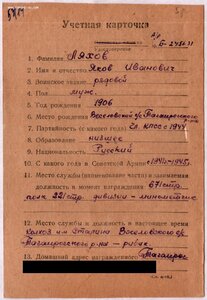 Учетная карточка
Б-248631
1. Фамилия Ляхов
2. Имя и отчество Яков Иванович
3. Воинское звание рядовой
4. Пол муж.
5. Год рождения 1906
6. Место рождения Веселовский с/с Таганрогского
7. Партийность (с какого года) чл. КПСС с 1944
8. Образование низшее
9. Национальность Русский
10. С какого года в Советской Армии
11. Место службы (наименование части) и занимаемая
должность в момент награждения 671 стр.
полк 221 стр. дивизии – минометчик
12. Место службы и должность в настоящее время
Колхоз им. Сталина Веселовский с/с
Таганрогского р-на – рыбак
13. Домашний адрес награжденного Таганрог